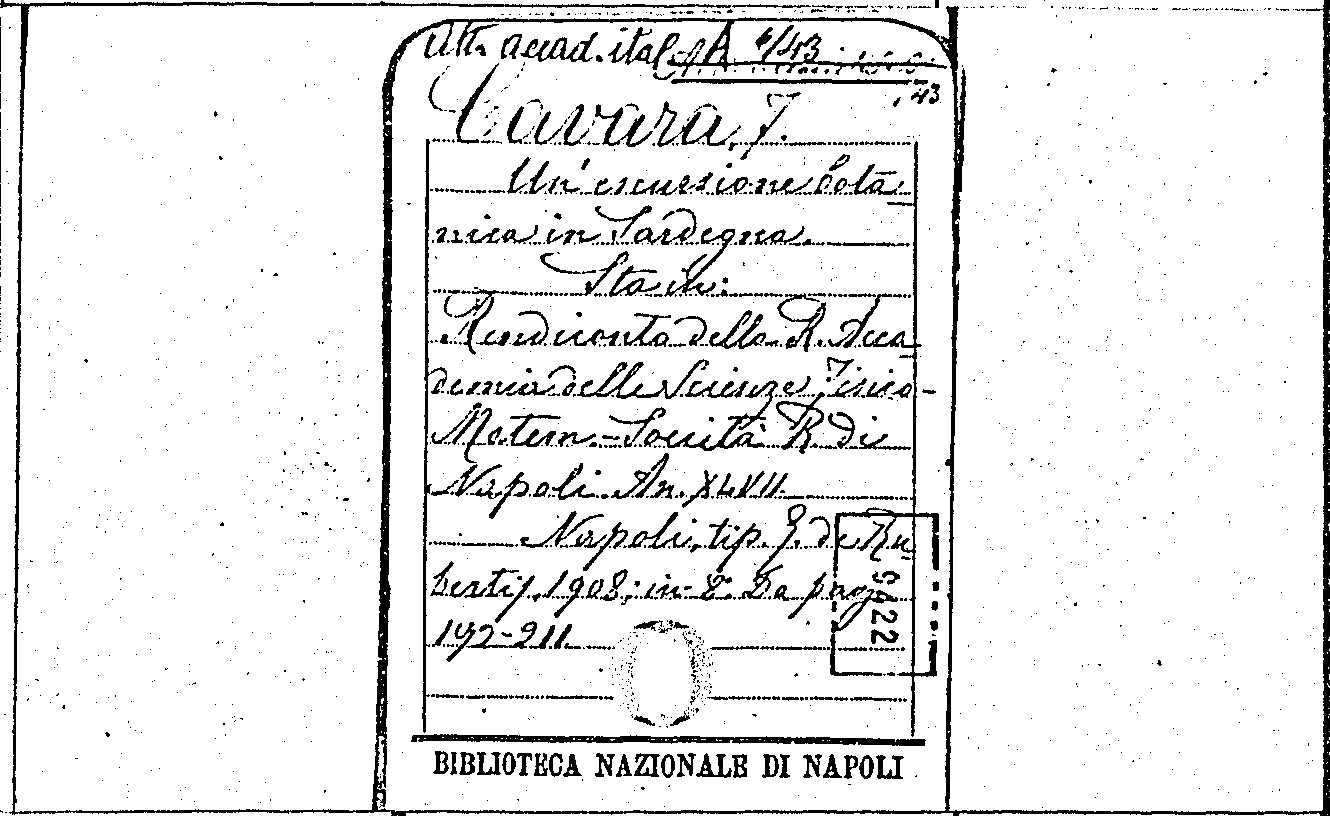 Atti accad. ital. A 6/43
, 43
Cavara, F.
Un' escursione bota
nica in Sardegna.
Sta in:
Rendiconto della R. Acca
demia delle Scienze Fisico-
Matem. - Società R. di
Napoli. An. XLVII.
Napoli, tip. G. de Ru
bertis, 1908; in-8° Da pag.
192-211.
9422
BIBLIOTECA NAZIONALE DI NAPOLI